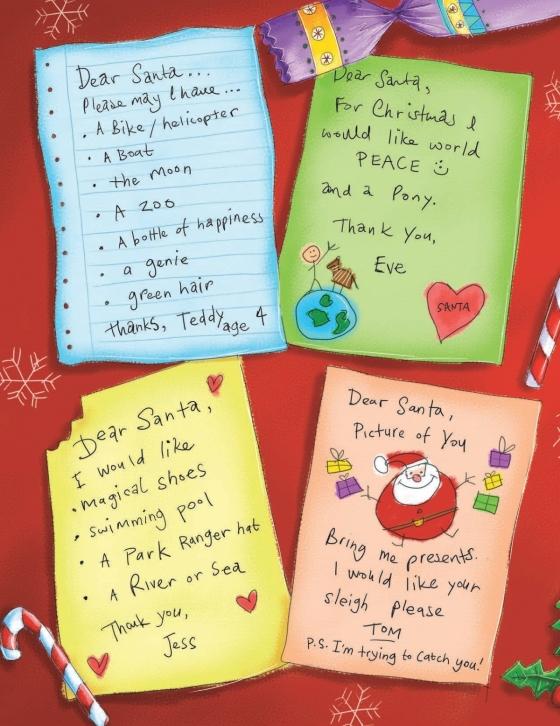 Dear Santa...
Please may I have...
• A Bike/helicopter
• A Boat
• the moon
• A zoo
• A bottle of happiness
• a genie
• green hair
thanks, Teddy age 4
Dear Santa,
For Christmas I
would like world
PEACE
and a Pony.
Thank You,
Eve
SANTA
Dear Santa,
I would like
• magical shoes
• swimming pool
• A Park Ranger hat
• A River or Sea
Thank you,
Jess
Dear Santa,
Picture of You
Bring me presents.
I would like your
sleigh please
TOM
P.S. I'm trying to catch you!